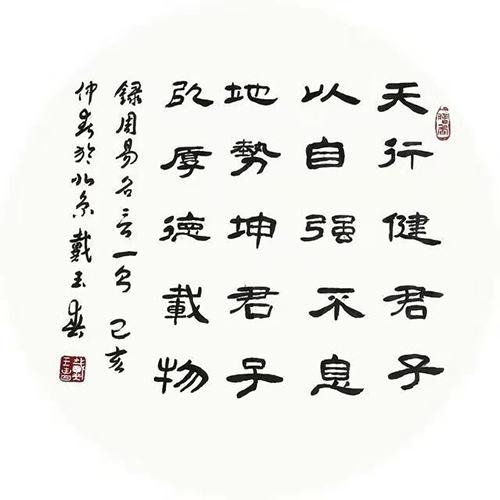 天行健君子
以自强不息
地勢坤君子
以厚德載物
錄周易名言一句 己亥
仲春於北京 戴玉春